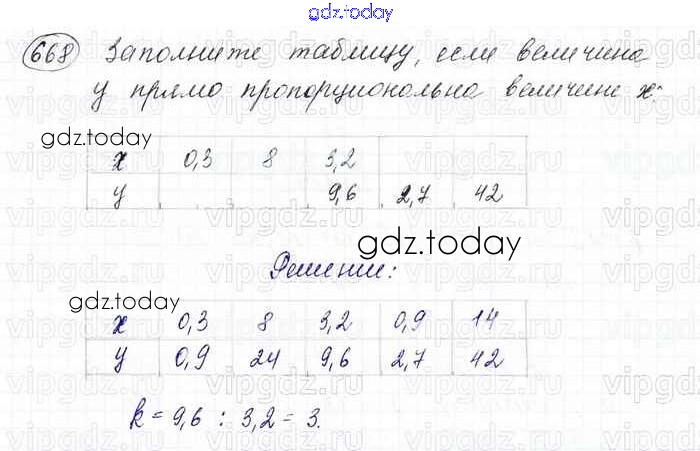 gdz.today
668 Заполните таблицу, если величина
у прямо пропорциональна величине х:
gdz.today
х 0,3 8 3,2
у 9,6 2,7 42
gdz.today
Решение:
gdz.today
х 0,3 8 3,2 0,9 14
у 0,9 24 9,6 2,7 42
k = 9,6 : 3,2 = 3.